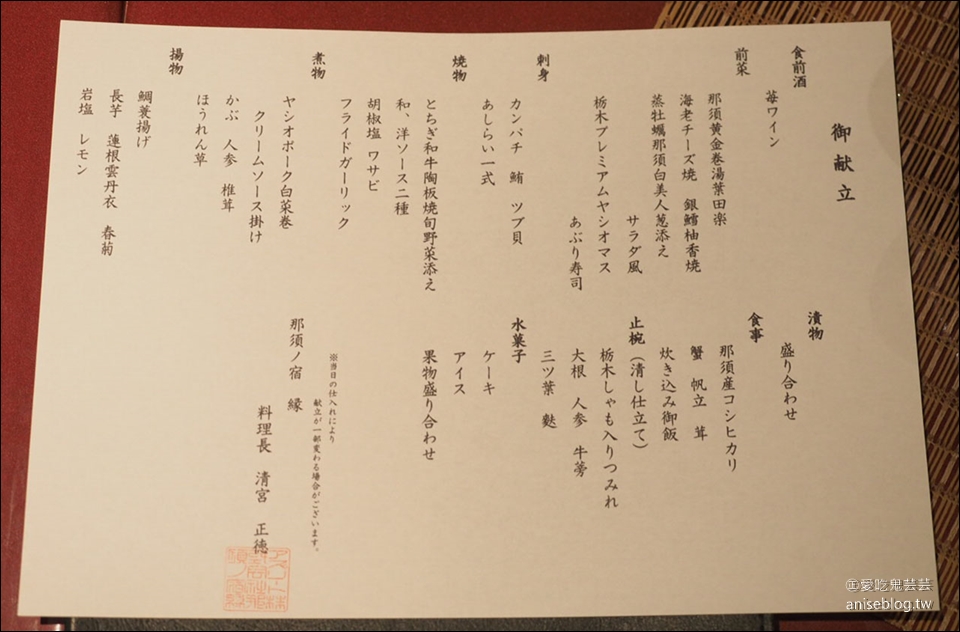 御献立
食前酒
苺ワイン
前菜
那須黄金巻湯葉田楽
海老チーズ焼 銀鱈柚香焼
蒸牡蠣那須白美人葱添え
サラダ風
栃木プレミアムヤシオマス
あぶり寿司
刺身
カンパチ 鮪 ツブ貝
あしらい一式
焼物
とちぎ和牛陶板焼旬野菜添え
和、洋ソース二種
胡椒塩 ワサビ
フライドガーリック
煮物
ヤシオポーク白菜巻
クリームソース掛け
かぶ 人参 椎茸
ほうれん草
揚物
鯛蓑揚げ
長芋 蓮根雲丹衣 春菊
岩塩 レモン
漬物
盛り合わせ
食事
那須産コシヒカリ
蟹 帆立 茸
炊き込み御飯
止椀(清し仕立て)
栃木しゃも入りつみれ
大根 人参 牛蒡
三ツ葉 麩
水菓子
ケーキ
アイス
果物盛り合わせ
※当日の仕入れにより
献立が一部変わる場合がございます。
那須ノ宿 縁
料理長 清宮 正徳
愛吃鬼芸芸
aniseblog.tw